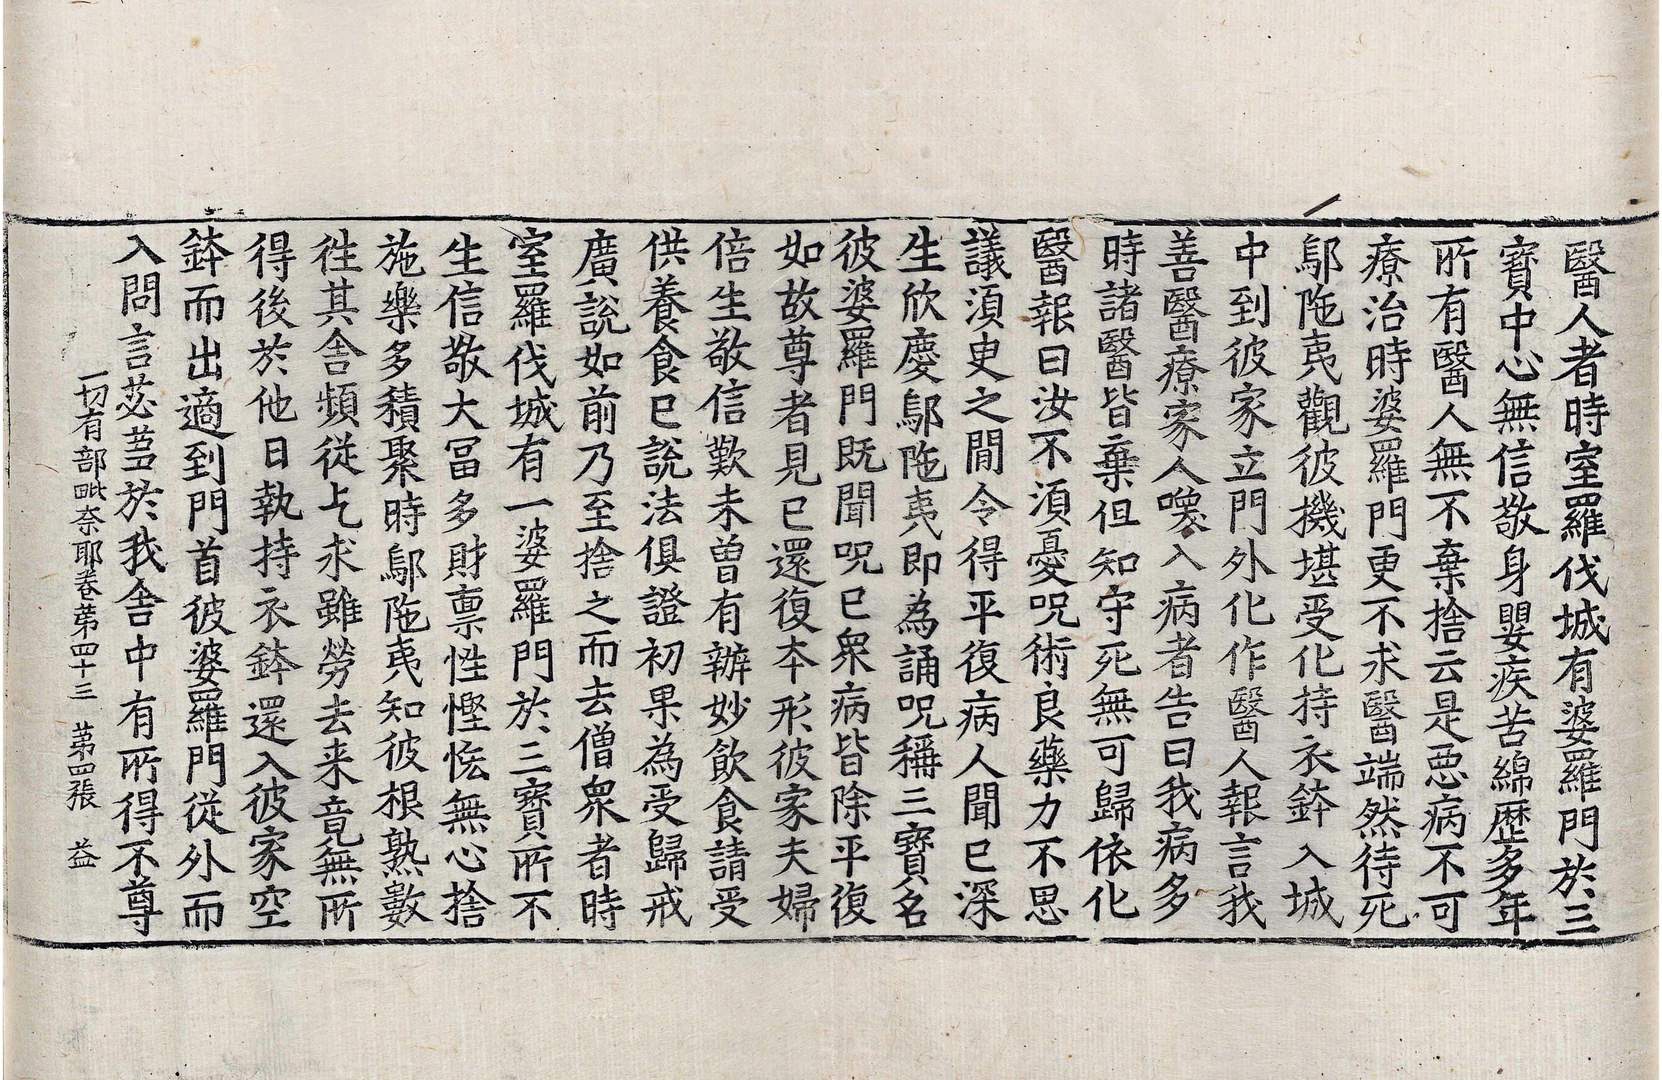 醫人者時室羅伐城有婆羅門於三
寶中心無信敬身嬰疾苦綿歷多年
所有醫人無不棄捨云是惡病不可
療治時婆羅門更不求醫端然待死
鄔陁夷觀彼機堪受化持衣鉢入城
中到彼家立門外化作醫人報言我
善醫療家人喚入病者告曰我病多
時諸醫皆棄但知守死無可歸依化
醫報曰汝不須憂呪術良藥力不思
議須臾之間令得平復病人聞已深
生欣慶鄔陁夷即為誦呪稱三寶名
彼婆羅門既聞呪已衆病皆除平復
如故尊者見已還復本形彼家夫婦
倍生敬信歎未曾有辦妙飲食請受
供養食已說法俱證初果為受歸戒
廣說如前乃至捨之而去僧衆者時
室羅伐城有一婆羅門於三寶所不
生信敬大冨多財禀性慳悋無心捨
施樂多積聚時鄔陁夷知彼根熟數
徃其舍頻從乞求雖勞去来竟無所
得後於他日執持衣鉢還入彼家空
鉢而出適到門首彼婆羅門從外而
入問言苾蒭於我舍中有所得不尊
一切有部毗奈耶卷第四十三 第四張 益